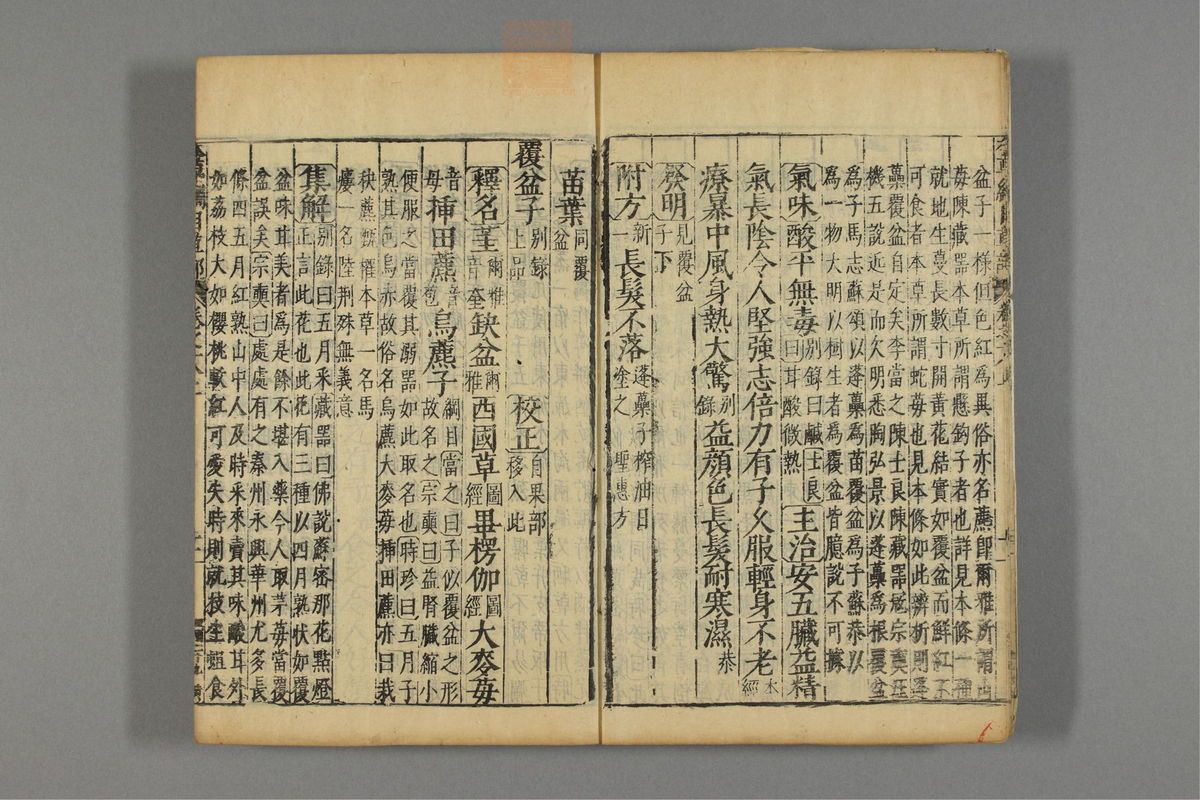 盆子一樣但色紅爲異俗亦名藨卽爾雅所謂山
莓陳藏器本草所謂懸鉤子者也詳見本條一種
就地生蔓長數寸開黃花結實如覆盆而鮮紅不
可食者本草所謂蛇莓也見本條如此辨析則蓬
蘽覆盆自定矣李當之陳士良陳藏器寇宗奭汪
機五說近是而欠明悉陶弘景以蓬蘽爲根覆盆
爲子馬志蘇頌以蓬蘽爲苗覆盆爲子蘇恭以
爲一物大明以樹生者爲覆盆皆臆說不可據
氣味酸平無毒別錄曰鹹士良曰甘酸微熱主治安五臟益精
氣長陰令人堅強志倍力有子久服輕身不老本經
療暴中風身熱大驚別錄益顏色長髮耐寒濕恭
發明見覆盆子下
附方新一長髮不落蓬蘽子榨油日塗之聖惠方
苗葉同覆盆
覆盆子別錄上品校正自果部移入此
釋名堇爾雅音奎缺盆爾雅西國草圖經畢楞伽圖經大麥莓
音母揷田藨音苞烏藨子綱目當之曰子似覆盆之形故名之宗奭曰益腎臟縮小
便服之當覆其溺器如此取名也時珍曰五月子
熟其色烏赤故俗名烏藨大麥莓揷田藨亦曰栽
秧藨甄權本草一名馬
瘻一名陸荆殊無義意
集解別錄曰五月采藏器曰佛說蘇密那花點燈
正言此花也此花有三種以四月熟狀如覆
盆味甘美者爲是餘不堪入藥今人取茅莓當覆
盆誤矣宗奭曰處處有之秦州永興華州尤多長
條四五月紅熟山中人及時采來賣其味酸甘外
如荔枝大如櫻桃軟紅可愛失時則就枝生蛆食